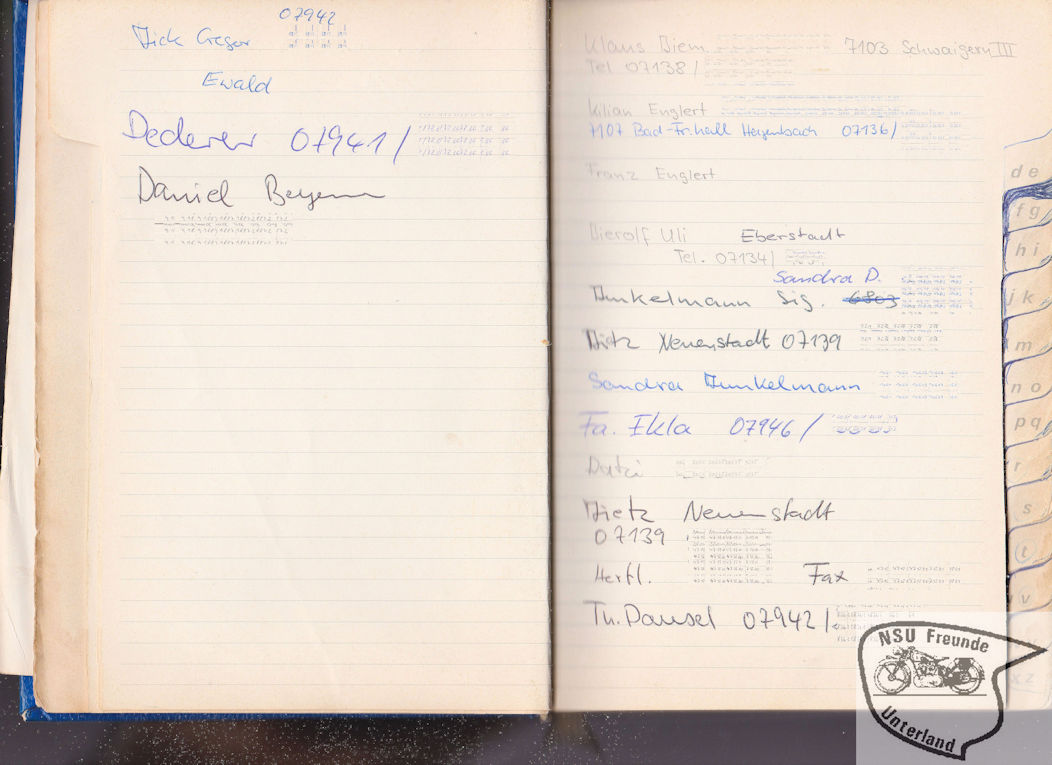 07942
Dick Gregor
Ewald
Dederer 07941/
Daniel
Klaus Diem 7103 Schwaigern III
Tel 07138/
Kilian Englert
7107 Bad-Fr.hall Heyenbach 07136/
Franz Englert
Dierolf Uli Eberstadt
Tel. 07134/
Sandra D.
Dunkelmann Sig. 6803
Dietz Neuenstadt 07139
Sandra Dunkelmann
Fa. Ikla 07946/
Datzi
Dietz Neuenstadt
07139
Hertl. Fax
Th. Dausel 07942/
de
fg
hi
jk
m
no
pq
r
s
t
v
xz
NSU Freunde
Unterland